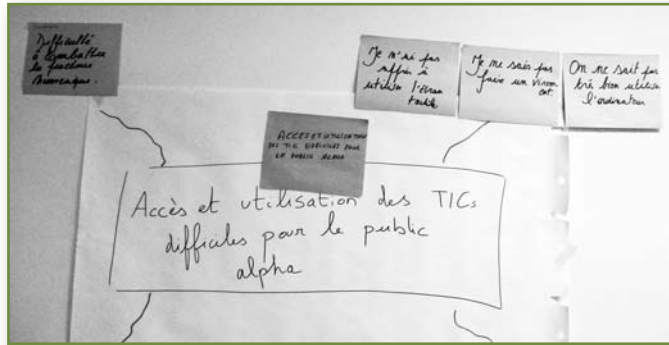 Difficulté
à combattre
la fracture
numérique.
Je n'ai pas
appris à
utiliser l'écran
tactile
Je ne sais pas
faire un virem
ent.
On ne sait pas
très bien utiliser
l'ordinateur
ACCÈS ET UTILISATION
DES TIC DIFFICILES POUR
LE PUBLIC ALPHA
Accès et utilisation des TICs
difficiles pour le public
alpha